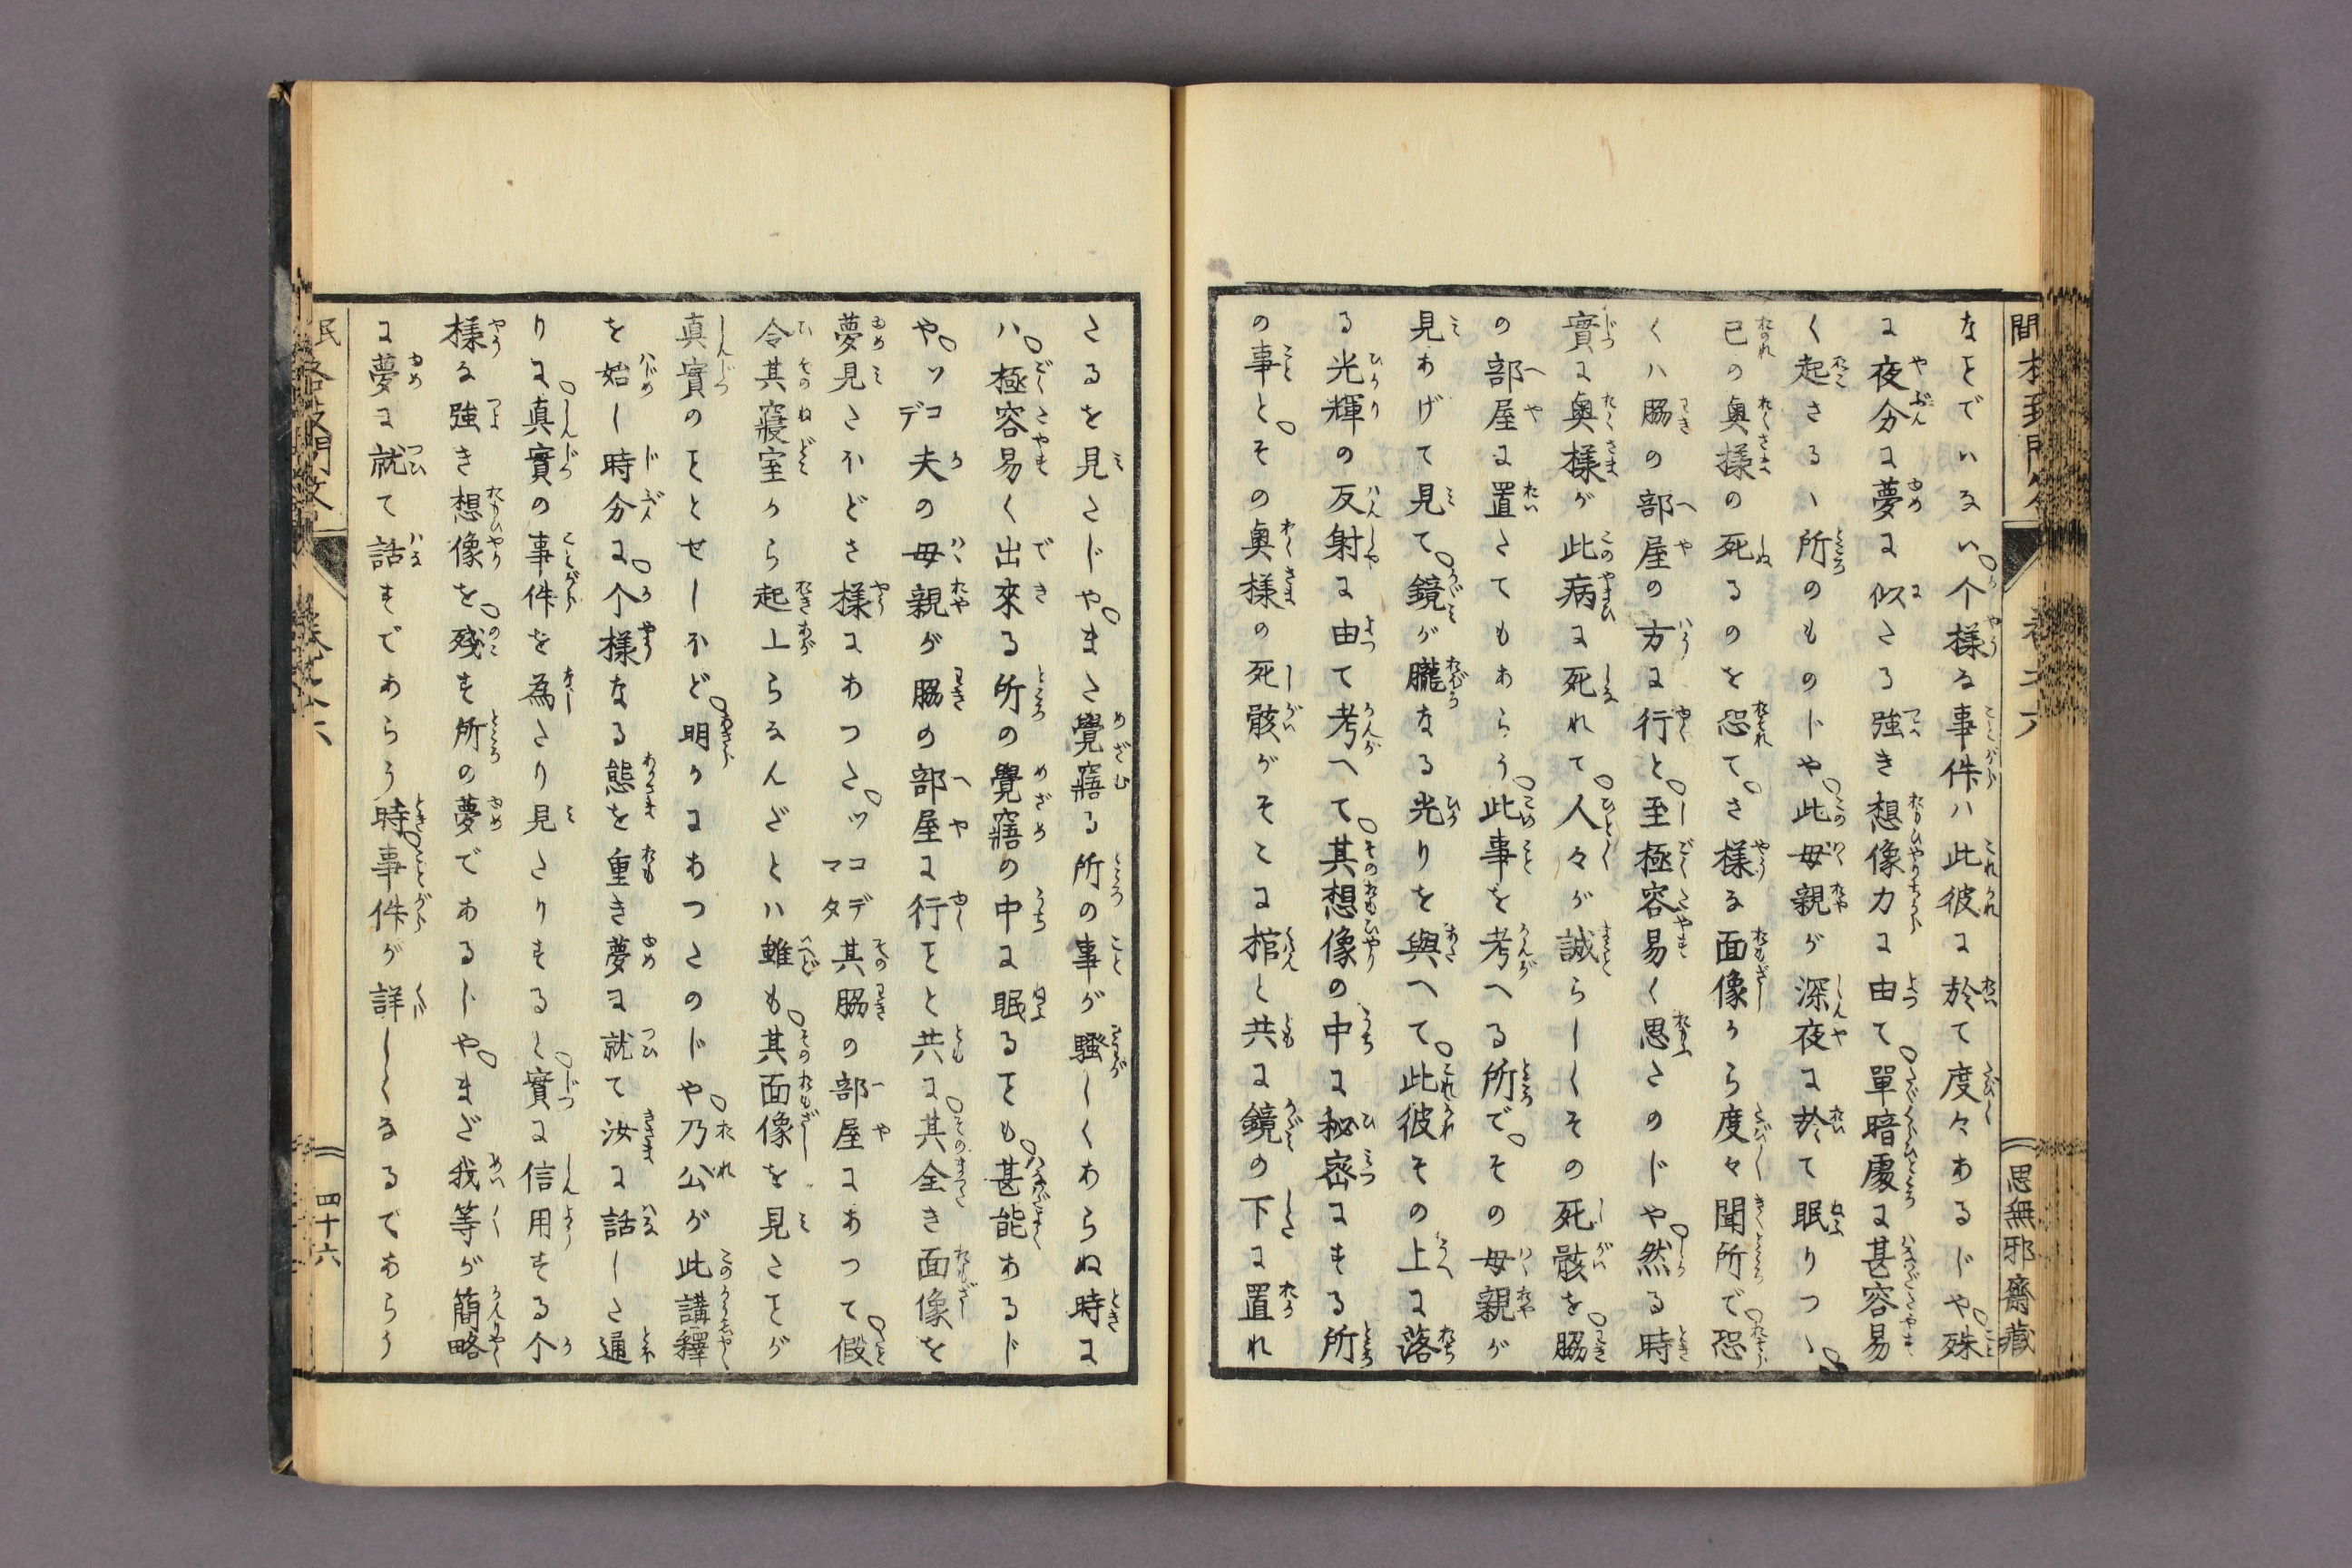 なをでいるい。个様な事件ハ此彼に於て度々あるじや。殊
に夜分に夢に似たる強き想像力に由て。單暗處に甚容易
く起さるゝ所のものじや。此母親が深夜に於て眠りつゝ。
己の奥様の死るのを恐て。さ様な面像から度々聞所で。恐
くハ脇の部屋の方に行と。至極容易く思たのじや。然る時
實に奥様が此病に死れて。人々が誠らしくその死骸を。脇
の部屋に置たてもあらう。此事を考へる所で。その母親が
見あげて見て。鏡が朧なる光りを與へて。此彼その上に落
る光輝の反射に由て考へて。其想像の中に秘密にまる所
の事と。その奥様の死骸がそこに棺と共に鏡の下に置れ
思無邪齋藏
たるを見たじや。また覺寤る所の事が騒しくあらぬ時に
ハ。極容易く出來る所の覺寤の中に眠るをも。甚能あるじ
や。ソコデ夫の母親が脇の部屋に行をと共に。其全き面像を
夢見たかどさ様にあつた。ソコデマタ其脇の部屋にあつて。假
令其寢室から起上らなんだとハ雖も。其面像を見たをが
真實のをとせしかど。明かにあつたのじや。乃公が此講釋
を始し時分に。个様なる態を重き夢に就て汝に話した通
りに。真實の事件を為たり見たりまると。實に信用する个
様な強き想像を。殘す所の夢であるじや。まだ我等が簡略
に夢に就て話すであらう時。事件が詳しくなるであらう
四十六